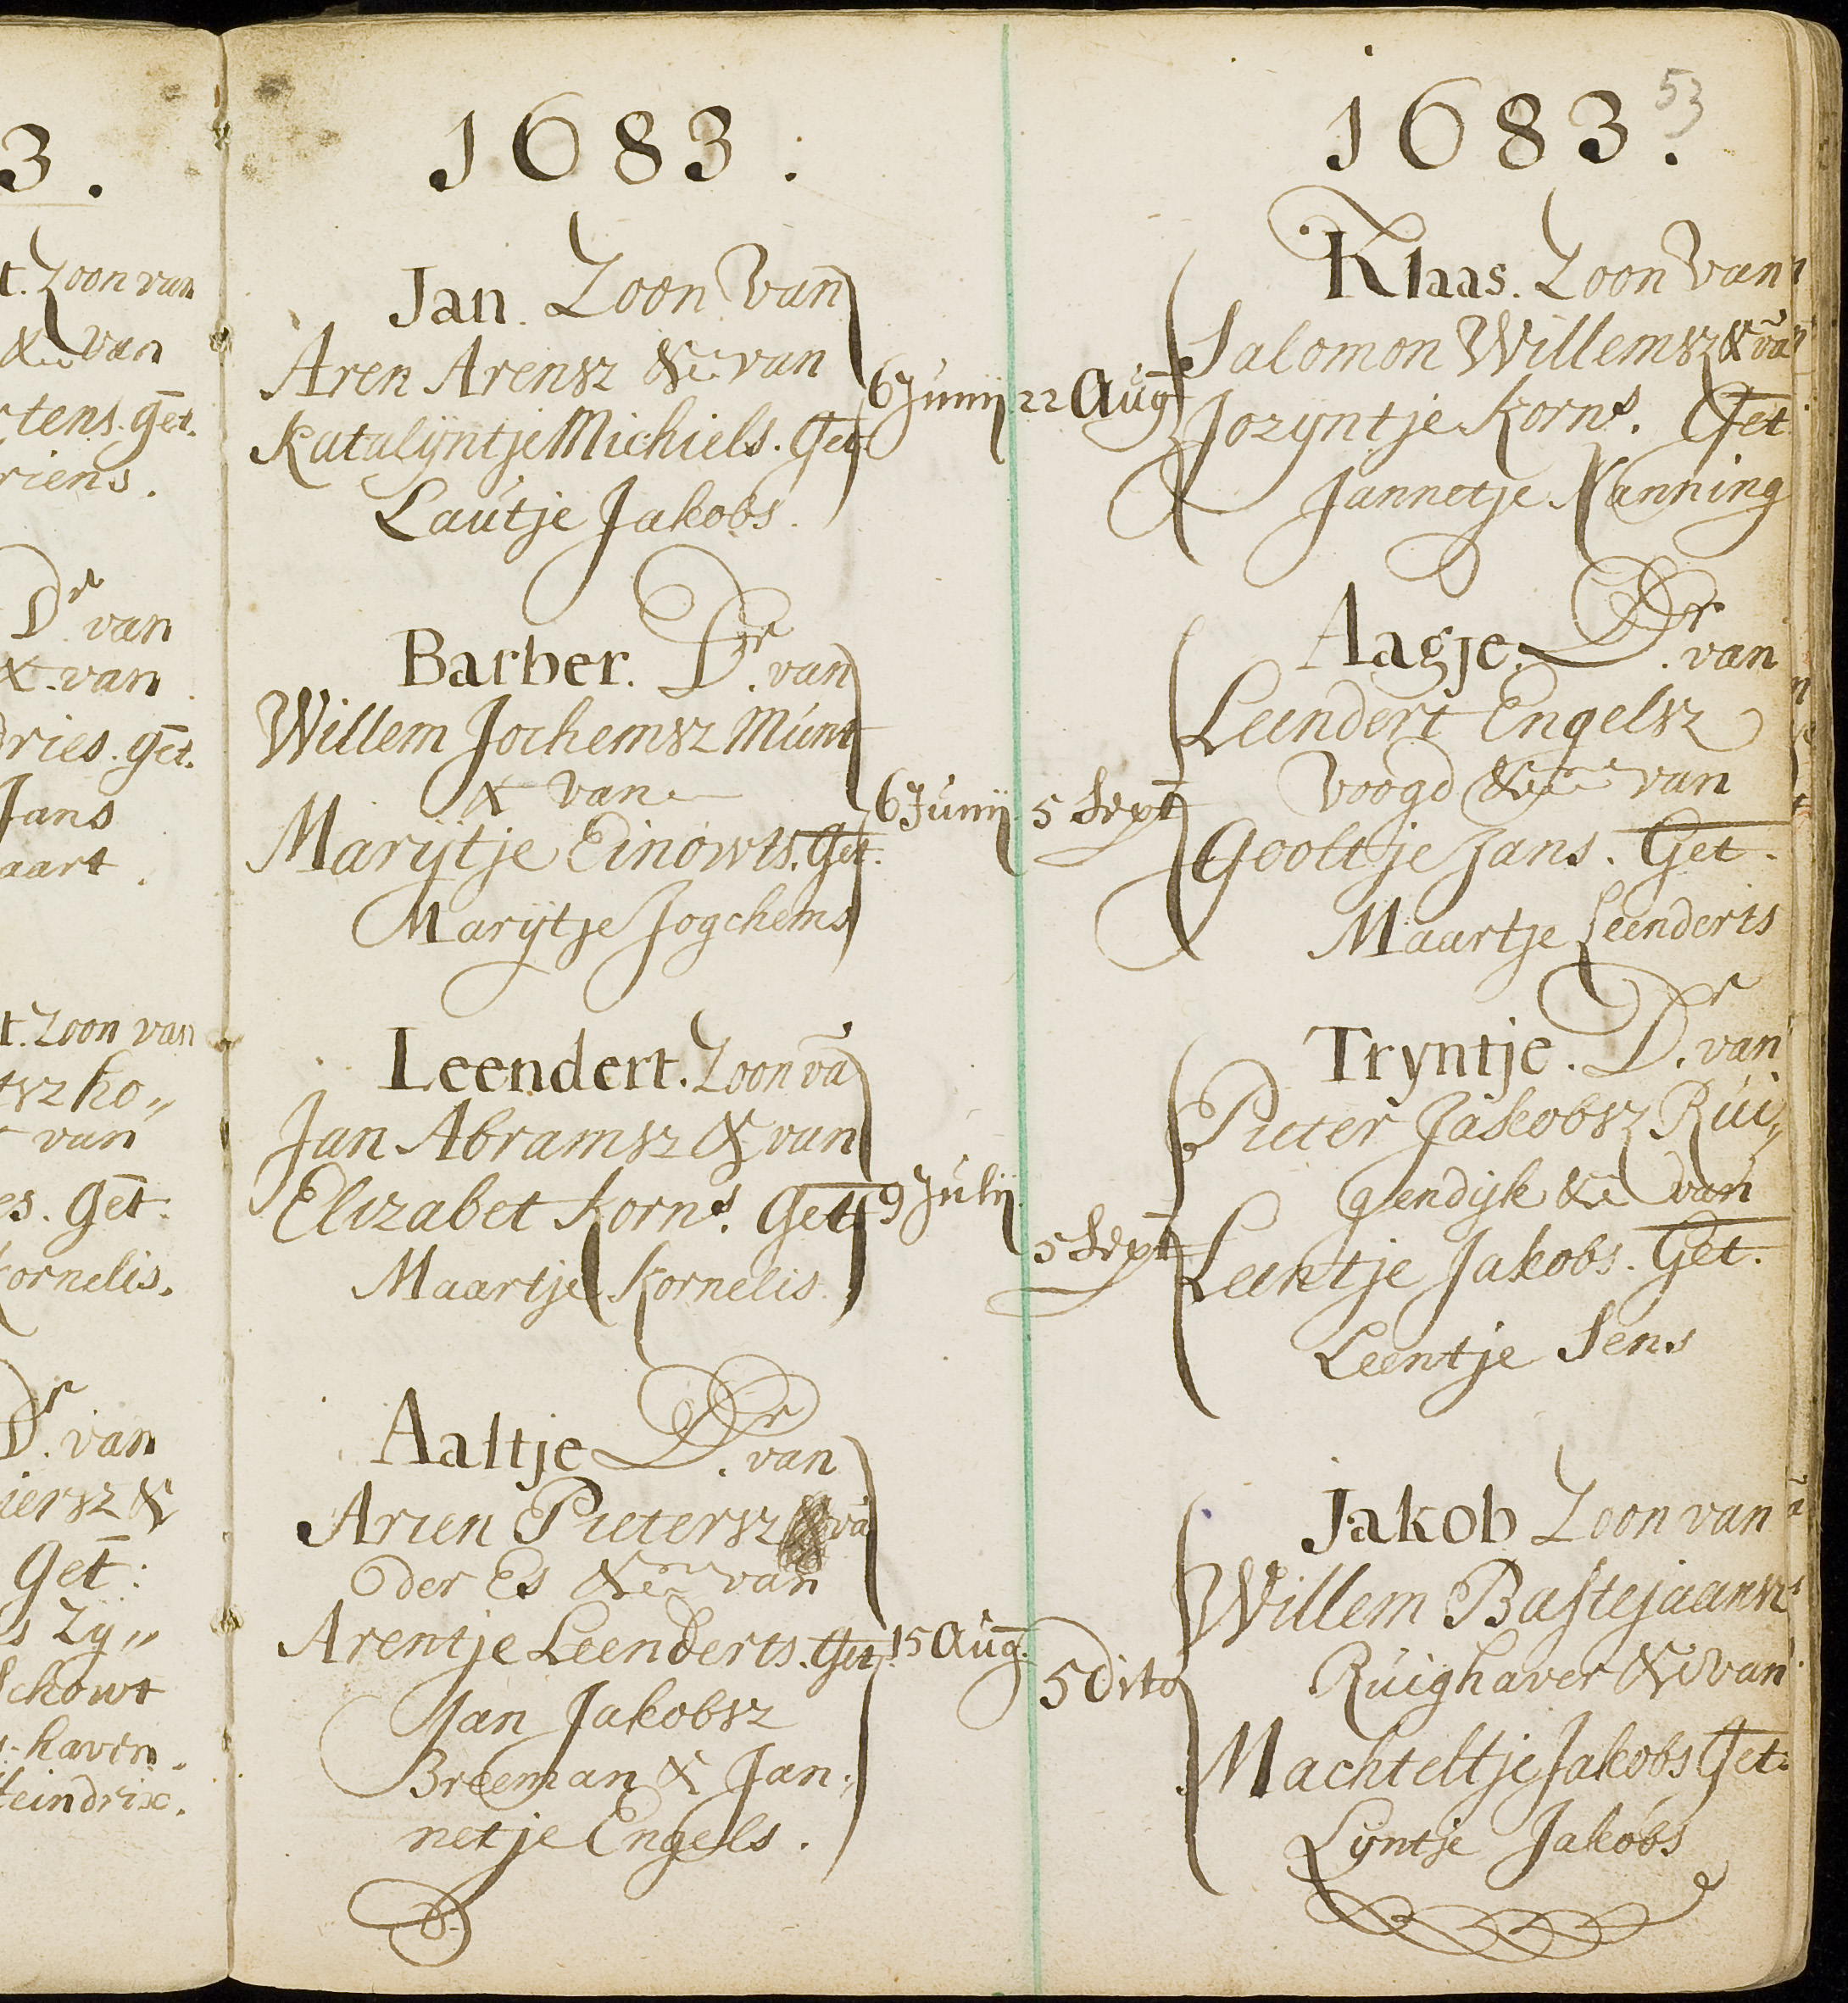 3.
t. Zoon van
& van
rtens. Get.
riens.
Dr van
&. van
dries. Get.
Jans
aart.
t. Zoon van
tsz ko„
van
es. Get:
Kornelis.
Dr. van
iersz &
Get:
s Zÿ„
Schowt
haven.
Heindrix.
1683.
Jan. Zoon van
Aren Arensz & van
Katalÿntje Michiels. Get
Lautje Jakobs.
6 Junij
Barber. Dr. van
Willem Jochemsz Munt
& van
Marÿtje Einowts. Get.
Marÿtje Jogchems
6 Junij
Leendert. Zoon vā
Jan Abramsz & van
Elizabet Korns. Get
Maartje Kornelis.
9 Julij.
Aaltje Dr. van
Arien Pietersz vā
der Es & van
Arentje Leenderts. Get.
Jan Jakobsz
Breeman & Jan„
netje Engels.
15 Aug.
53
1683.
Klaas. Zoon van
Salomon Willemsz & vā
Jozyntje Korns. Get
Jannetje Nanning
22 Aug
Aagje. Dr. van
Leendert Engelsz
Voogd & van
Gooltje Jans. Get.
Maartje Leenderts
5 Sept
Tryntje. Dr. van
Pieter Jakobsz Rui„
gendijk & van
Leentje Jakobs. Get.
Leentje Sens
5 Sept
Jakob Zoon van
Willem Bastejaansz
Ruighaver & van
Machteltje Jakobs Get:
Lyntje Jakobs
5 dito